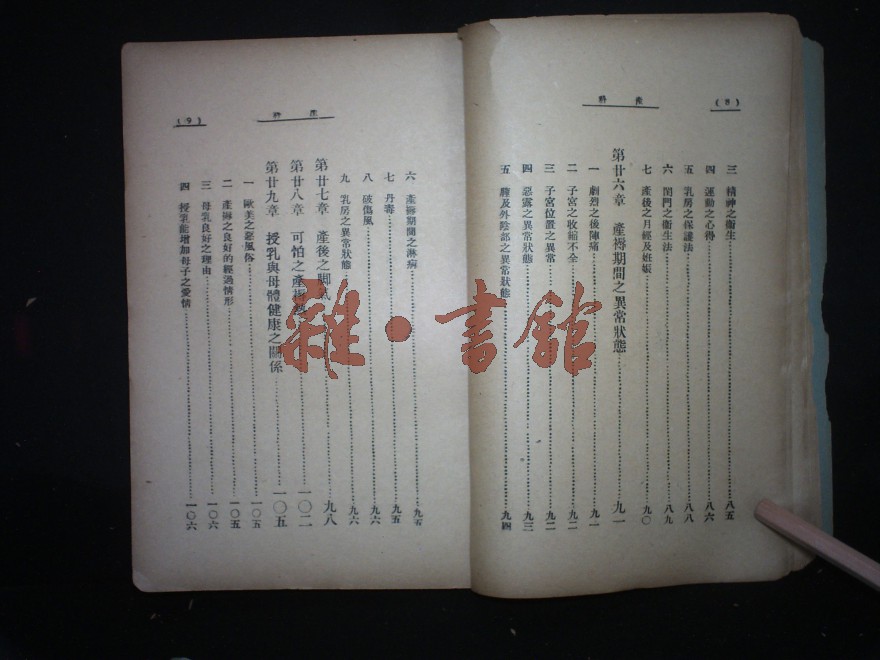 (8)
產科
三 精神之衛生……八五
四 運動之心得……八六
五 乳房之保護法……八八
六 閨門之衛生法……八九
七 產後之月經及妊娠……九〇
第廿六章 產褥期間之異常狀態……九一
一 劇烈之後陣痛……九一
二 子宮之收縮不全……九二
三 子宮位置之異常……九二
四 惡露之異常狀態……九三
五 膣及外陰部之異常狀態……九四
產科
(9)
六 產褥期間之淋病……九五
七 丹毒……九五
八 破傷風……九六
九 乳房之異常狀態……九六
第廿七章 產後之脚氣……九八
第廿八章 可怕之產褥熱……一〇二
第廿九章 授乳與母體健康之關係……一〇五
一 歐美之惡風俗……一〇五
二 產褥之良好的經過情形……一〇五
三 母乳良好之理由……一〇六
四 授乳能增加母子之愛情……一〇六
雜·書館